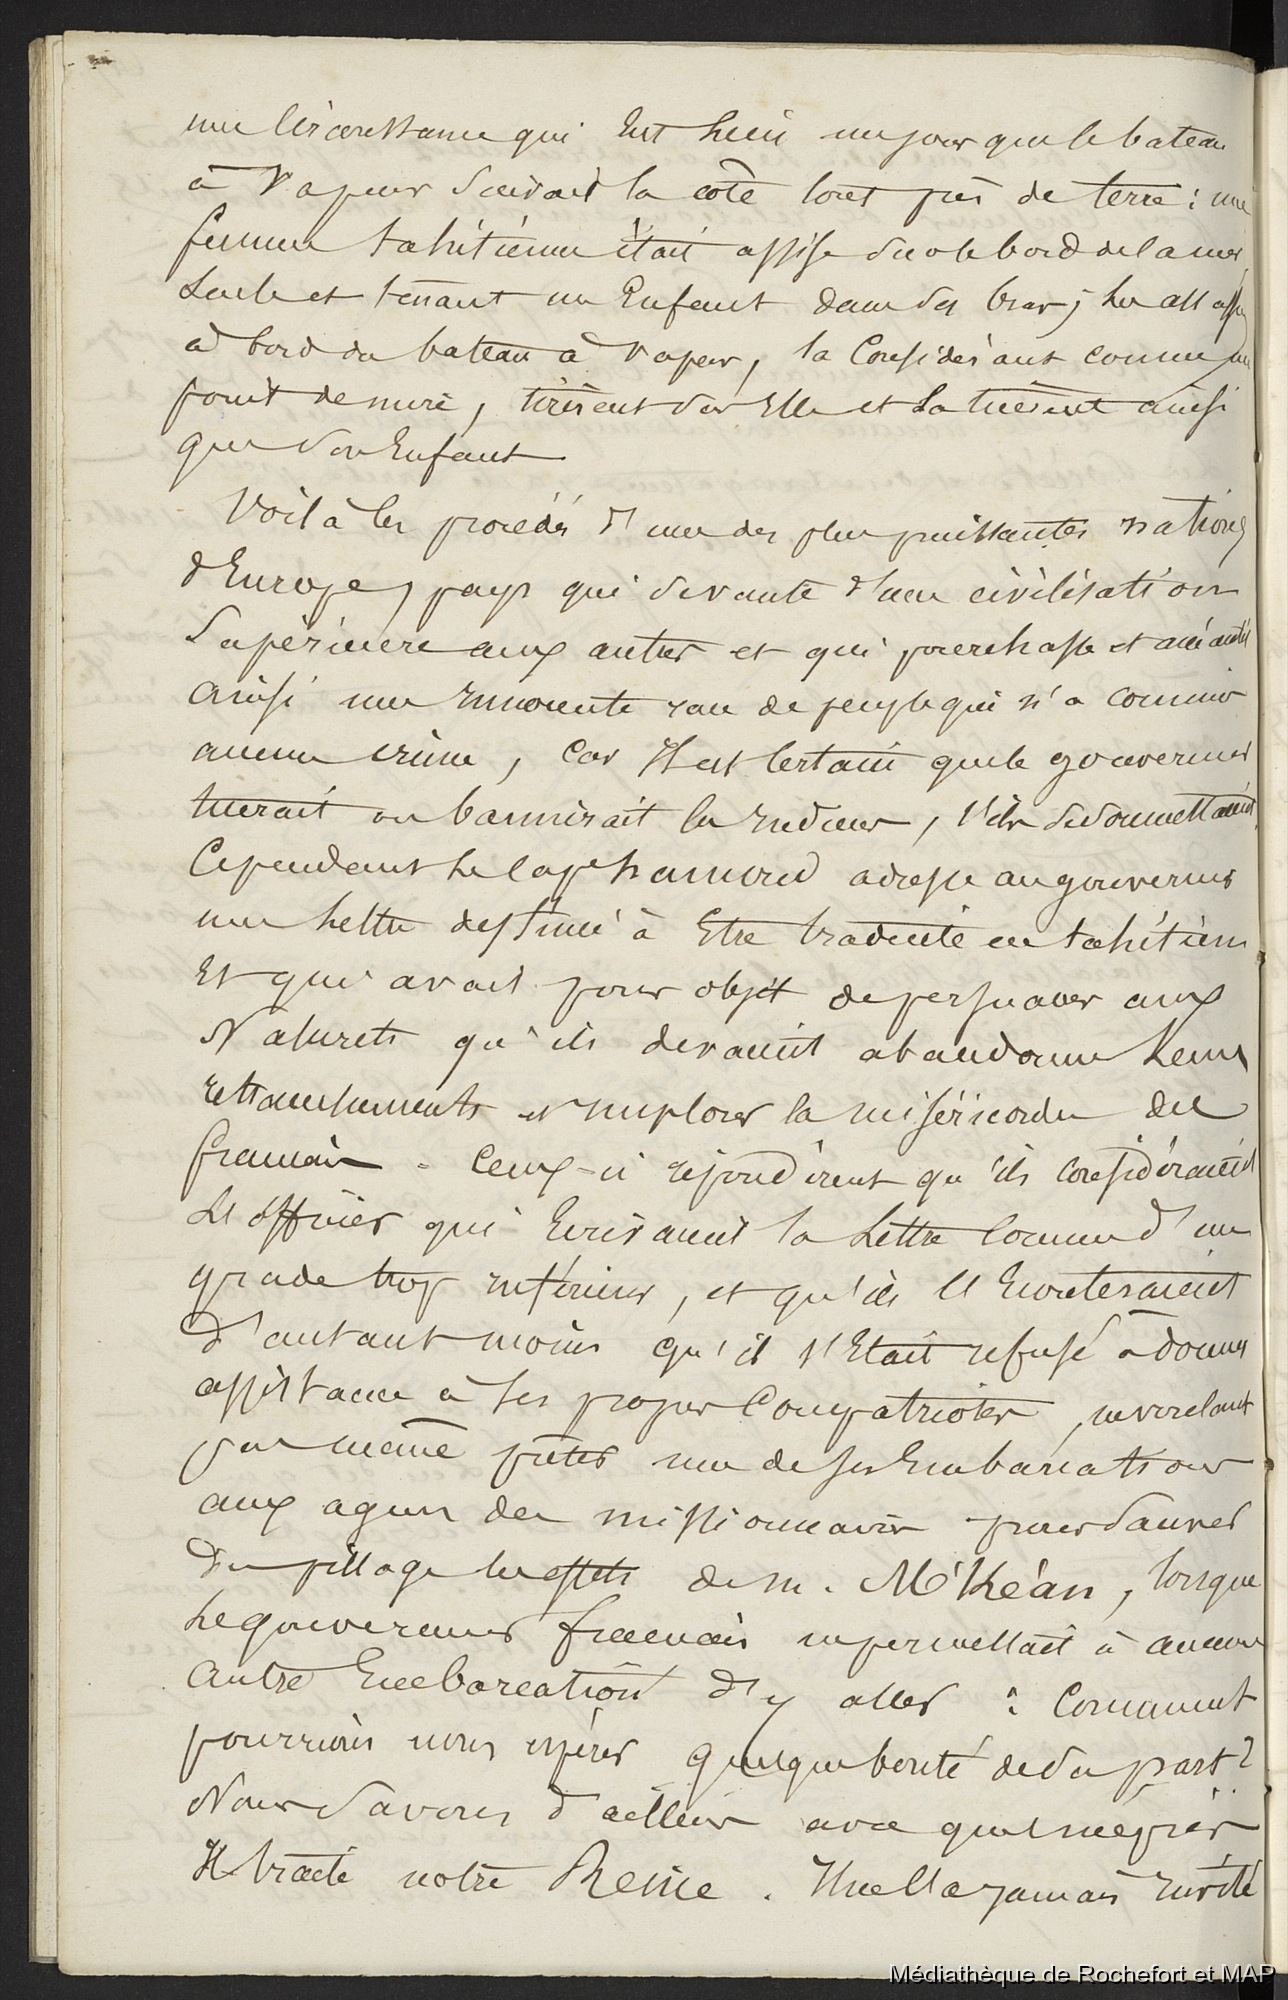 une circonstance qui eut lieu un jour que le bateau
à vapeur suivait la côte tout près de terre : une
femme tahitienne était assise sur le bord de la mer
seule et tenant un Enfant dans ses bras ; les
à bord du bateau à vapeur, la Considérant comme un
point de mire, tirèrent sur Elle et la tuèrent ainsi
que son Enfant
Voilà les procédés d'une des plus puissantes nations
d'Europe, pays qui se vante d'une civilisation
Supérieure aux autres et qui pourchasse et anéantit
ainsi une Innocente race de peuple qui n'a commis
aucun crime, Car Il est certain que le gouverneur
tuerait ou bannirait les Indiens, s'ils se soumettaient
Cependant le Cape hammond adressa au gouverneur
une Lettre destinée à Etre traduite en tahitien
Et qui avait pour objet de persuader aux
Naturels qu'ils devaient abandonner Leurs
retranchements et Implorer la miséricorde des
français - Ceux-ci répondirent qu'ils considéraient
L'officier qui Ecrivait la Lettre Comme d'un
grade trop inférieur, et qu'ils l'Ecouteraient
d'autant moins qu'il s'Etait refusé à donner
assistance à ses propres Compatriotes, ne voulant
pas même prêter une de ses Embarcations
aux agens des missionnaires pour Sauver
du pillage les effets de m. McKéan, lorsque
Le gouverneur français ne permettait à aucune
autre Embarcation d'y aller : Comment
pourrions nous espérer quelque bonté de sa part ?
Nous Savons d'ailleurs avec quel mépris
Il traite notre Reine. Il ne l'a jamais Invité
Médiathèque de Rochefort et MAP